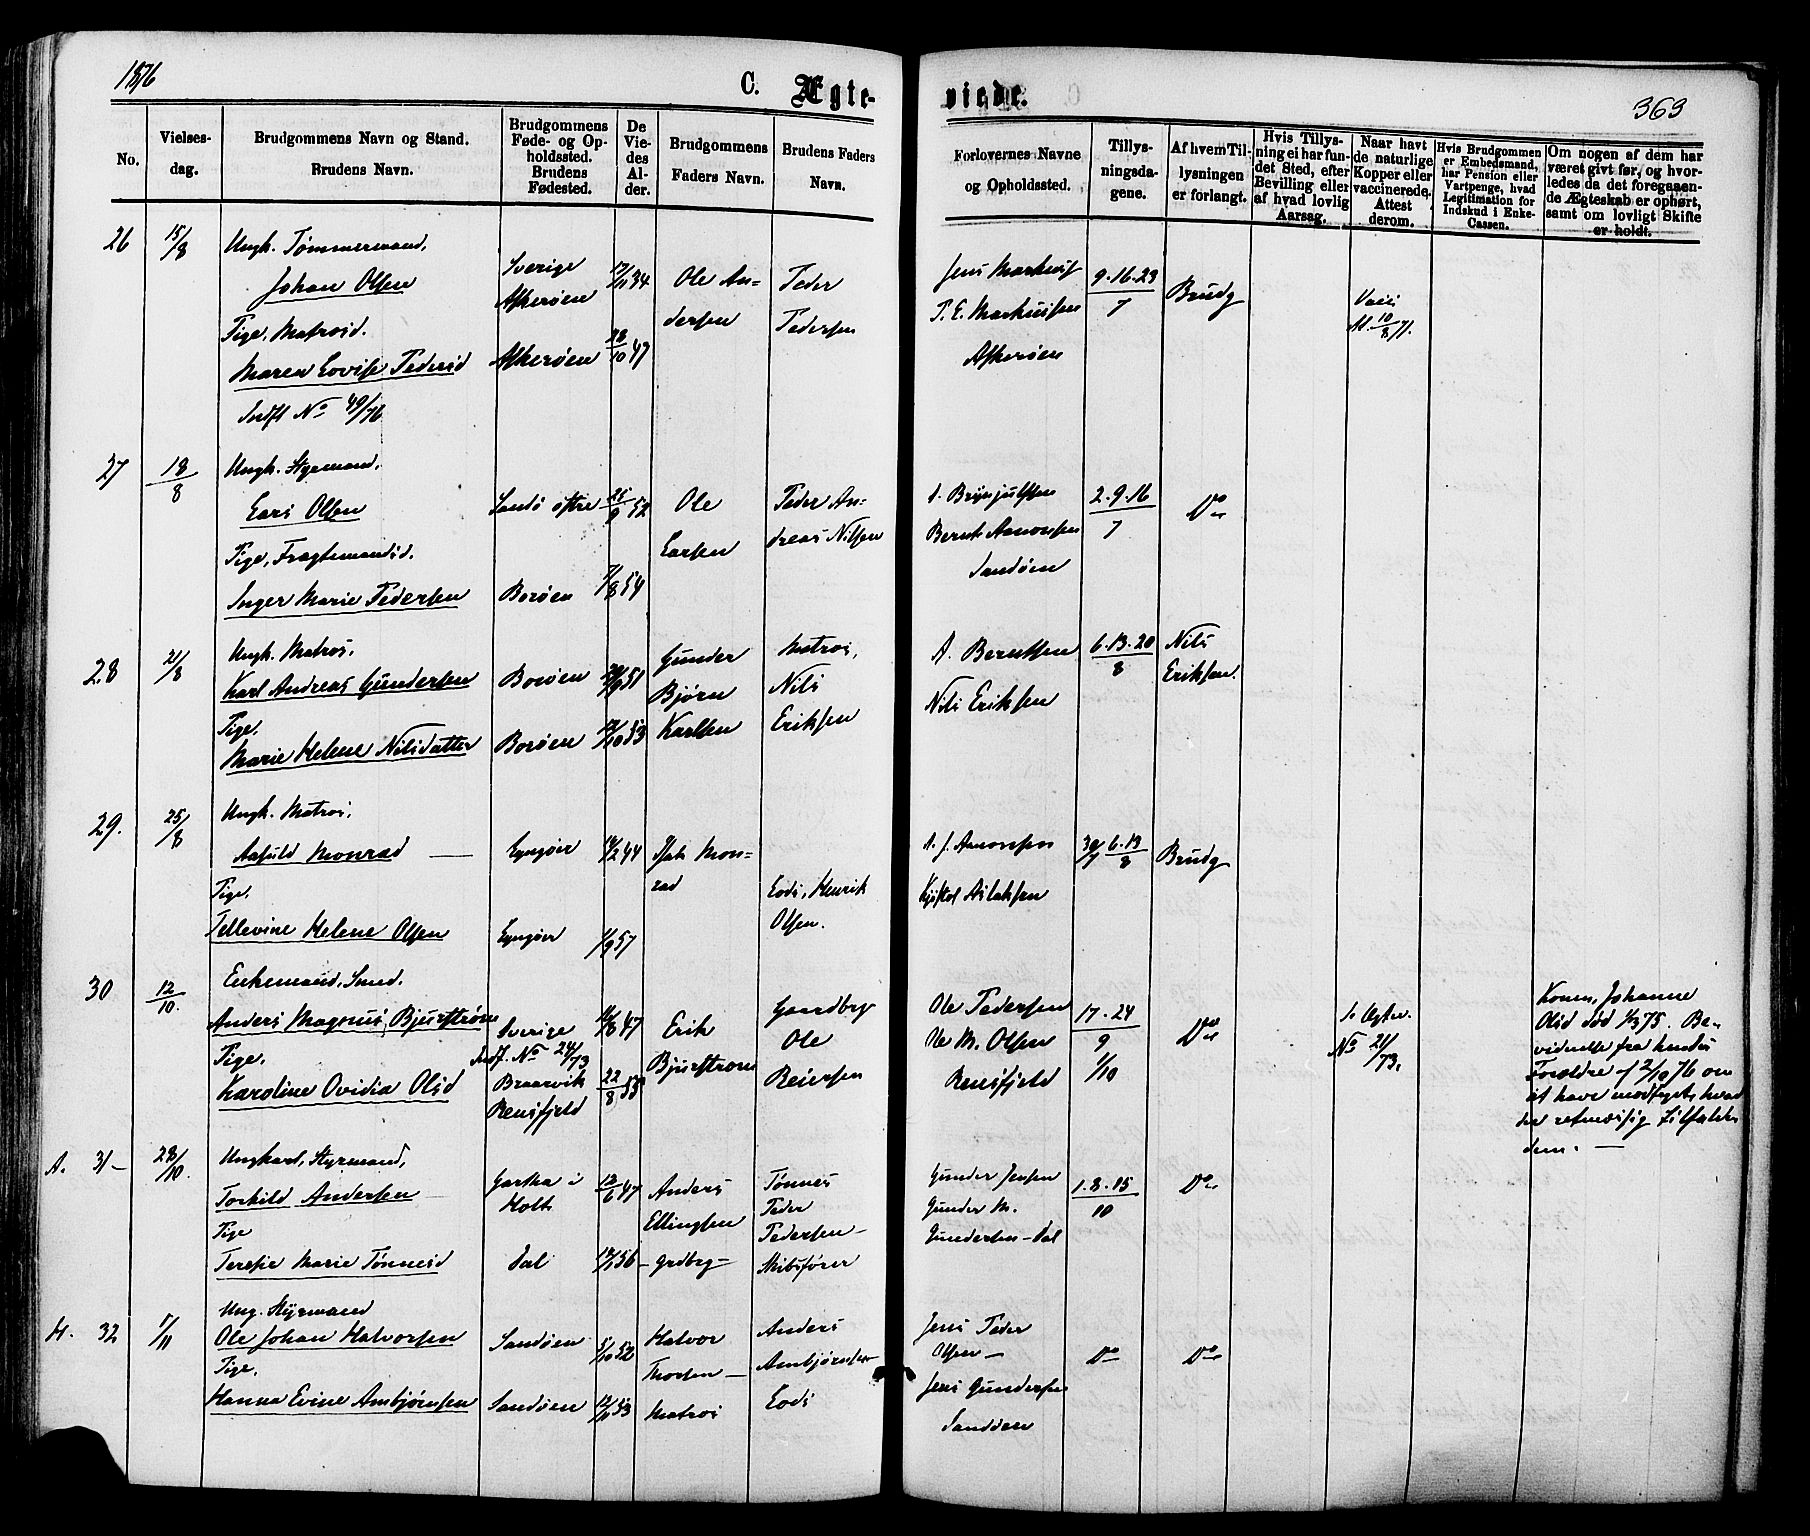 1876
C. Ægte-
viede.
363
No.
Vielses-
dag.
Brudgommens Navn og Stand.
Brudens Navn.
Brudgommens
Føde- og Op-
holdssted.
Brudens
Fødested.
De
Vie-
des
Al-
der.
Brudgommens
Faders Navn.
Brudens Faders
Navn.
Forlovernes Navne
og Opholdssted.
Tillys-
ningsda-
gene.
Af hvem Til-
lysningen
er forlangt.
Hvis Tillys-
ning ei har fun-
det Sted, efter
Bevilling eller
af hvad lovlig
Aarsag.
Naar havt
de naturlige
Kopper eller
vaccinerede.
Attest
derom.
Hvis Brudgommen
er Embedsmand,
har Pension eller
Vartpenge, hvad
Legitimation for
Indskud i Enke-
Cassen.
Om nogen af dem har
været givt før, og hvor-
ledes da det foregaaen-
de Ægteskab er ophørt,
samt om lovligt Skifte
er holdt.
26
15/8
Ungk. Tømmermand,
Johan Olsen
Pige, Matrosd.
Maren Lovise Pedersd
Indfl No 49/76
Sverige
Askerøen
Askerøen
17/11 34
28/10 47
Ole An-
dersen
Peder
Pedersen
Jens Markuss
P. E. Markussen
Askerøen
9.16.23
7
Brudg
Vacc
At. 10/8 71.
27
18/8
Ungk. Styrmand,
Lars Olsen
Pige, Fragtemandsd.
Inger Marie Pedersen
Sandø østre
Borøen
25/9 52
7/8 54
Ole
Larsen
Peder An-
dreas Nilsen
A. Brynjulfsen
Bernt Aanonsen
Sandøen
2.9.16
7
Do
28
21/8
Ungk. Matros,
Karl Andreas Gundersen
Pige,
Marie Helene Nilsdatter
Borøen
Borøen
29/9 51
17/10 53
Gunder
Bjørn
Karlsen
Matros,
Nils
Eriksen
A. Berntsen
Nils Eriksen
6.13.20
8
Nils
Eriksen.
29.
25/8
Ungk. Matros,
Aasuld Monrad
Pige,
Tellevine Helene Olsen
Lyngøer
Lyngøer
14/2 44
1/9 57
Isak Mon-
rad
Lods, Henrik
Olsen.
A. J. Aanonsen
Kristol Aslaksen
30/7 6.13
8
Brudg
30
12/10.
Enkemand, Smed.
Anders Magnus Bjurstrøm
Pige,
Karoline Ovidia Olsd
Sverige
Indf. No 24/73
Braarvik
Rensfjeld
16/8 47
22/8 53
Erik
Bjurstrøm
Gaardbrg
Ole
Reiersen
Ole Pedersen
Ole M. Olsen
Rensfjeld
17.24
9
1/10
Do
No 21/73,
Konen, Johanne
Olsd død 1/3 75. Be-
vidnelse fra hendes
Forældre af 2/10 76 om
at have modtaget, hvad
der retmæssig tilfalder
dem. —
A. 31 -
28/10.
Ungkarl, Styrmand,
Torkild Andersen
Pige
Teresie Marie Tønnesd
Gartha i
Holt
Dal
12/6 47
14/1 56
Anders
Ellingsen
— grdbrg —
Tønnes
Peder
Pedersen —
Skibsfører
Gunder Jensen
Gunder M.
Gundersen - Dal
1.8.15
10
Do
H. 32
7/11
Ung. Styrmand
Ole Johan Halvorsen
Pige,
Hanna Evine Ambjørnsen
Sandøen
Sandøen
5/10 52
12/11 53
Halvor
Thorsen —
Matros
Anders
Ambjørnsen
Lods
Jens Peder
Olsen —
Jens Gundersen
Sandøen
Do
Do